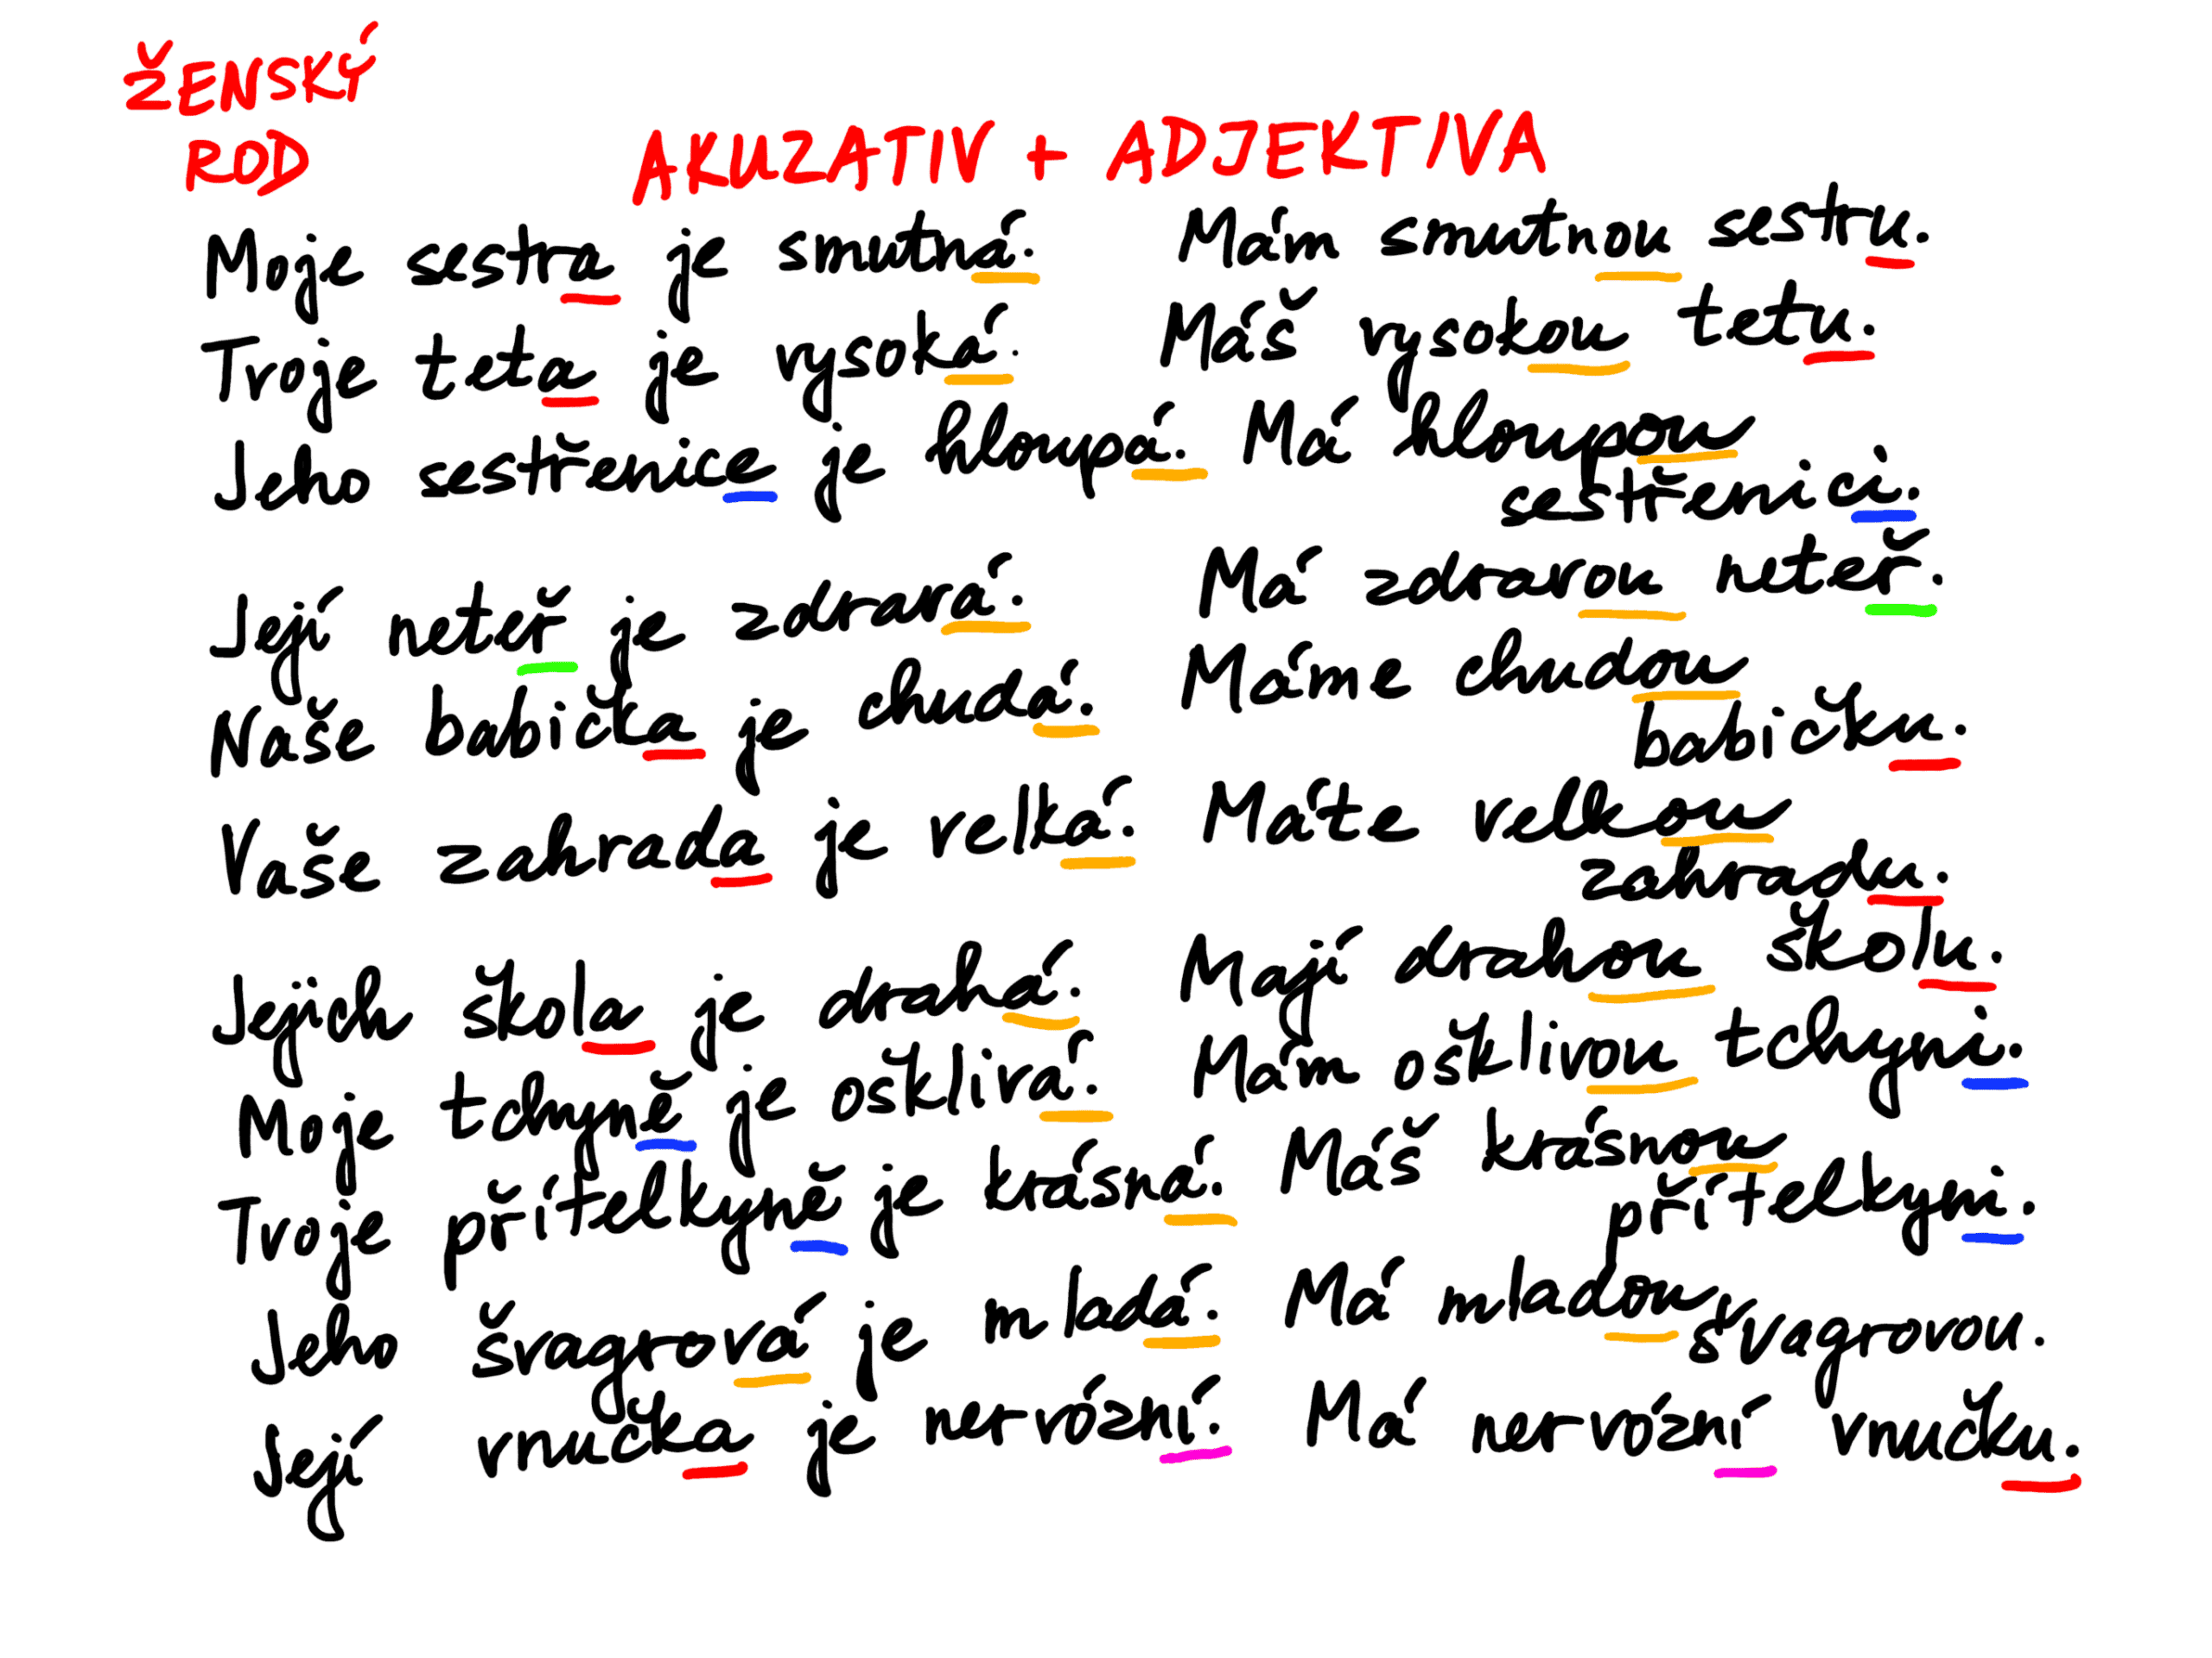 ŽENSKÝ
ROD
AKUZATIV + ADJEKTIVA
Moje sestra je smutná. Mám smutnou sestru.
Tvoje teta je vysoká. Máš vysokou tetu.
Jeho sestřenice je hloupá. Má hloupou
sestřenici.
Její neteř je zdravá. Má zdravou neteř.
Naše babička je chudá. Máme chudou
babičku.
Vaše zahrada je velká. Máte velkou
zahradu.
Jejich škola je drahá. Mají drahou školu.
Moje tchyně je ošklivá. Mám ošklivou tchyni.
Tvoje přítelkyně je krásná. Máš krásnou
přítelkyni.
Jeho švagrová je mladá. Má mladou švagrovou.
Její vnučka je nervózní. Má nervózní vnučku.